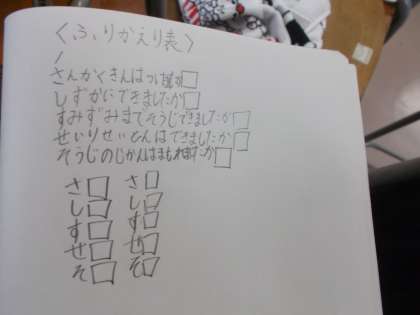 〈ふりかえり表〉
/
さんかくきんは□
しずかにできましたか□
すみずみまでそうじできましたか□
せいりせいとんはできましたか□
そうじのじかんはまもれましたか□
さ□ さ□
し□ し□
す□ ず□
せ□ ぜ□
そ□ そ□